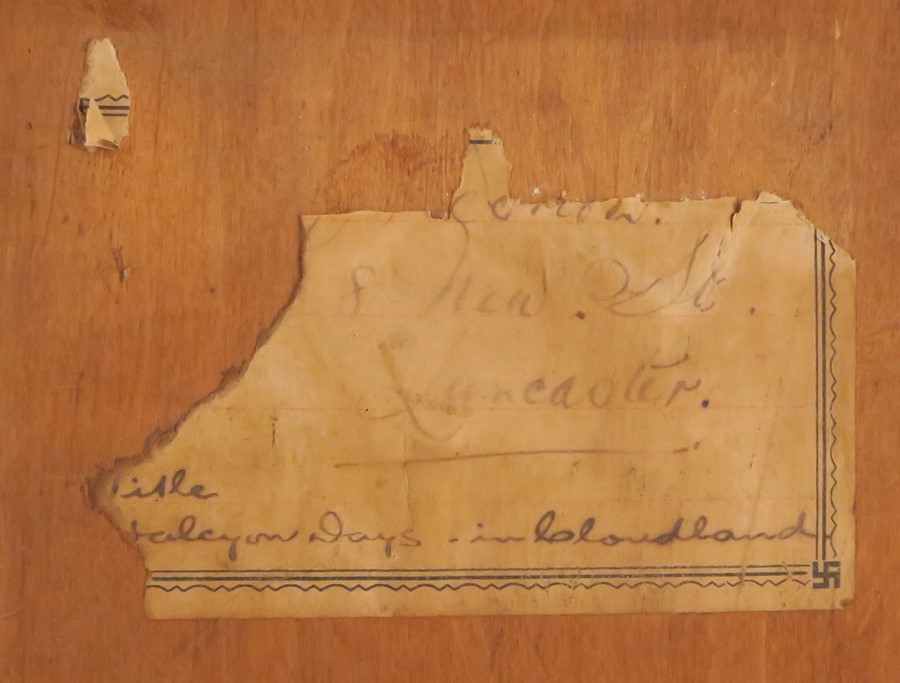 8 New St.
Lancaster.
itle
alcyon Days - in Cloudland